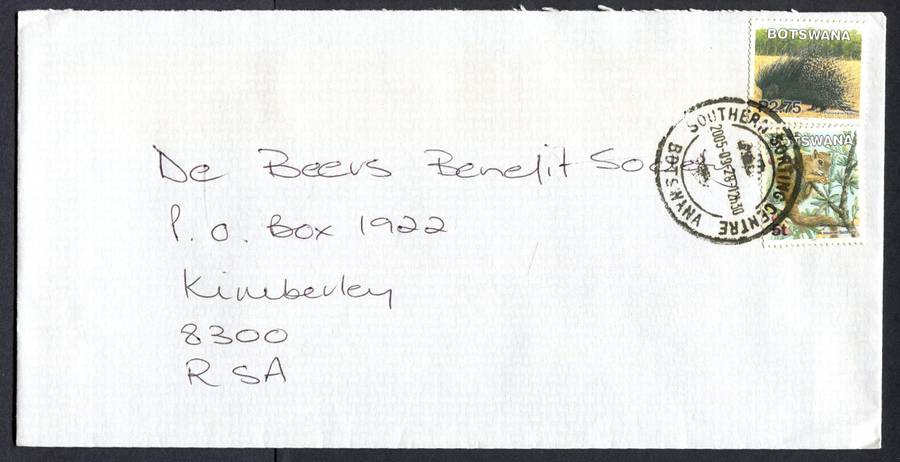 BOTSWANA
P2.75
BOTSWANA
5t
SOUTHERN SORTING CENTRE
BOTSWANA
2005-09-28-12h30
De Beers Benefit
P.O. Box 1922
Kimberley
8300
RSA